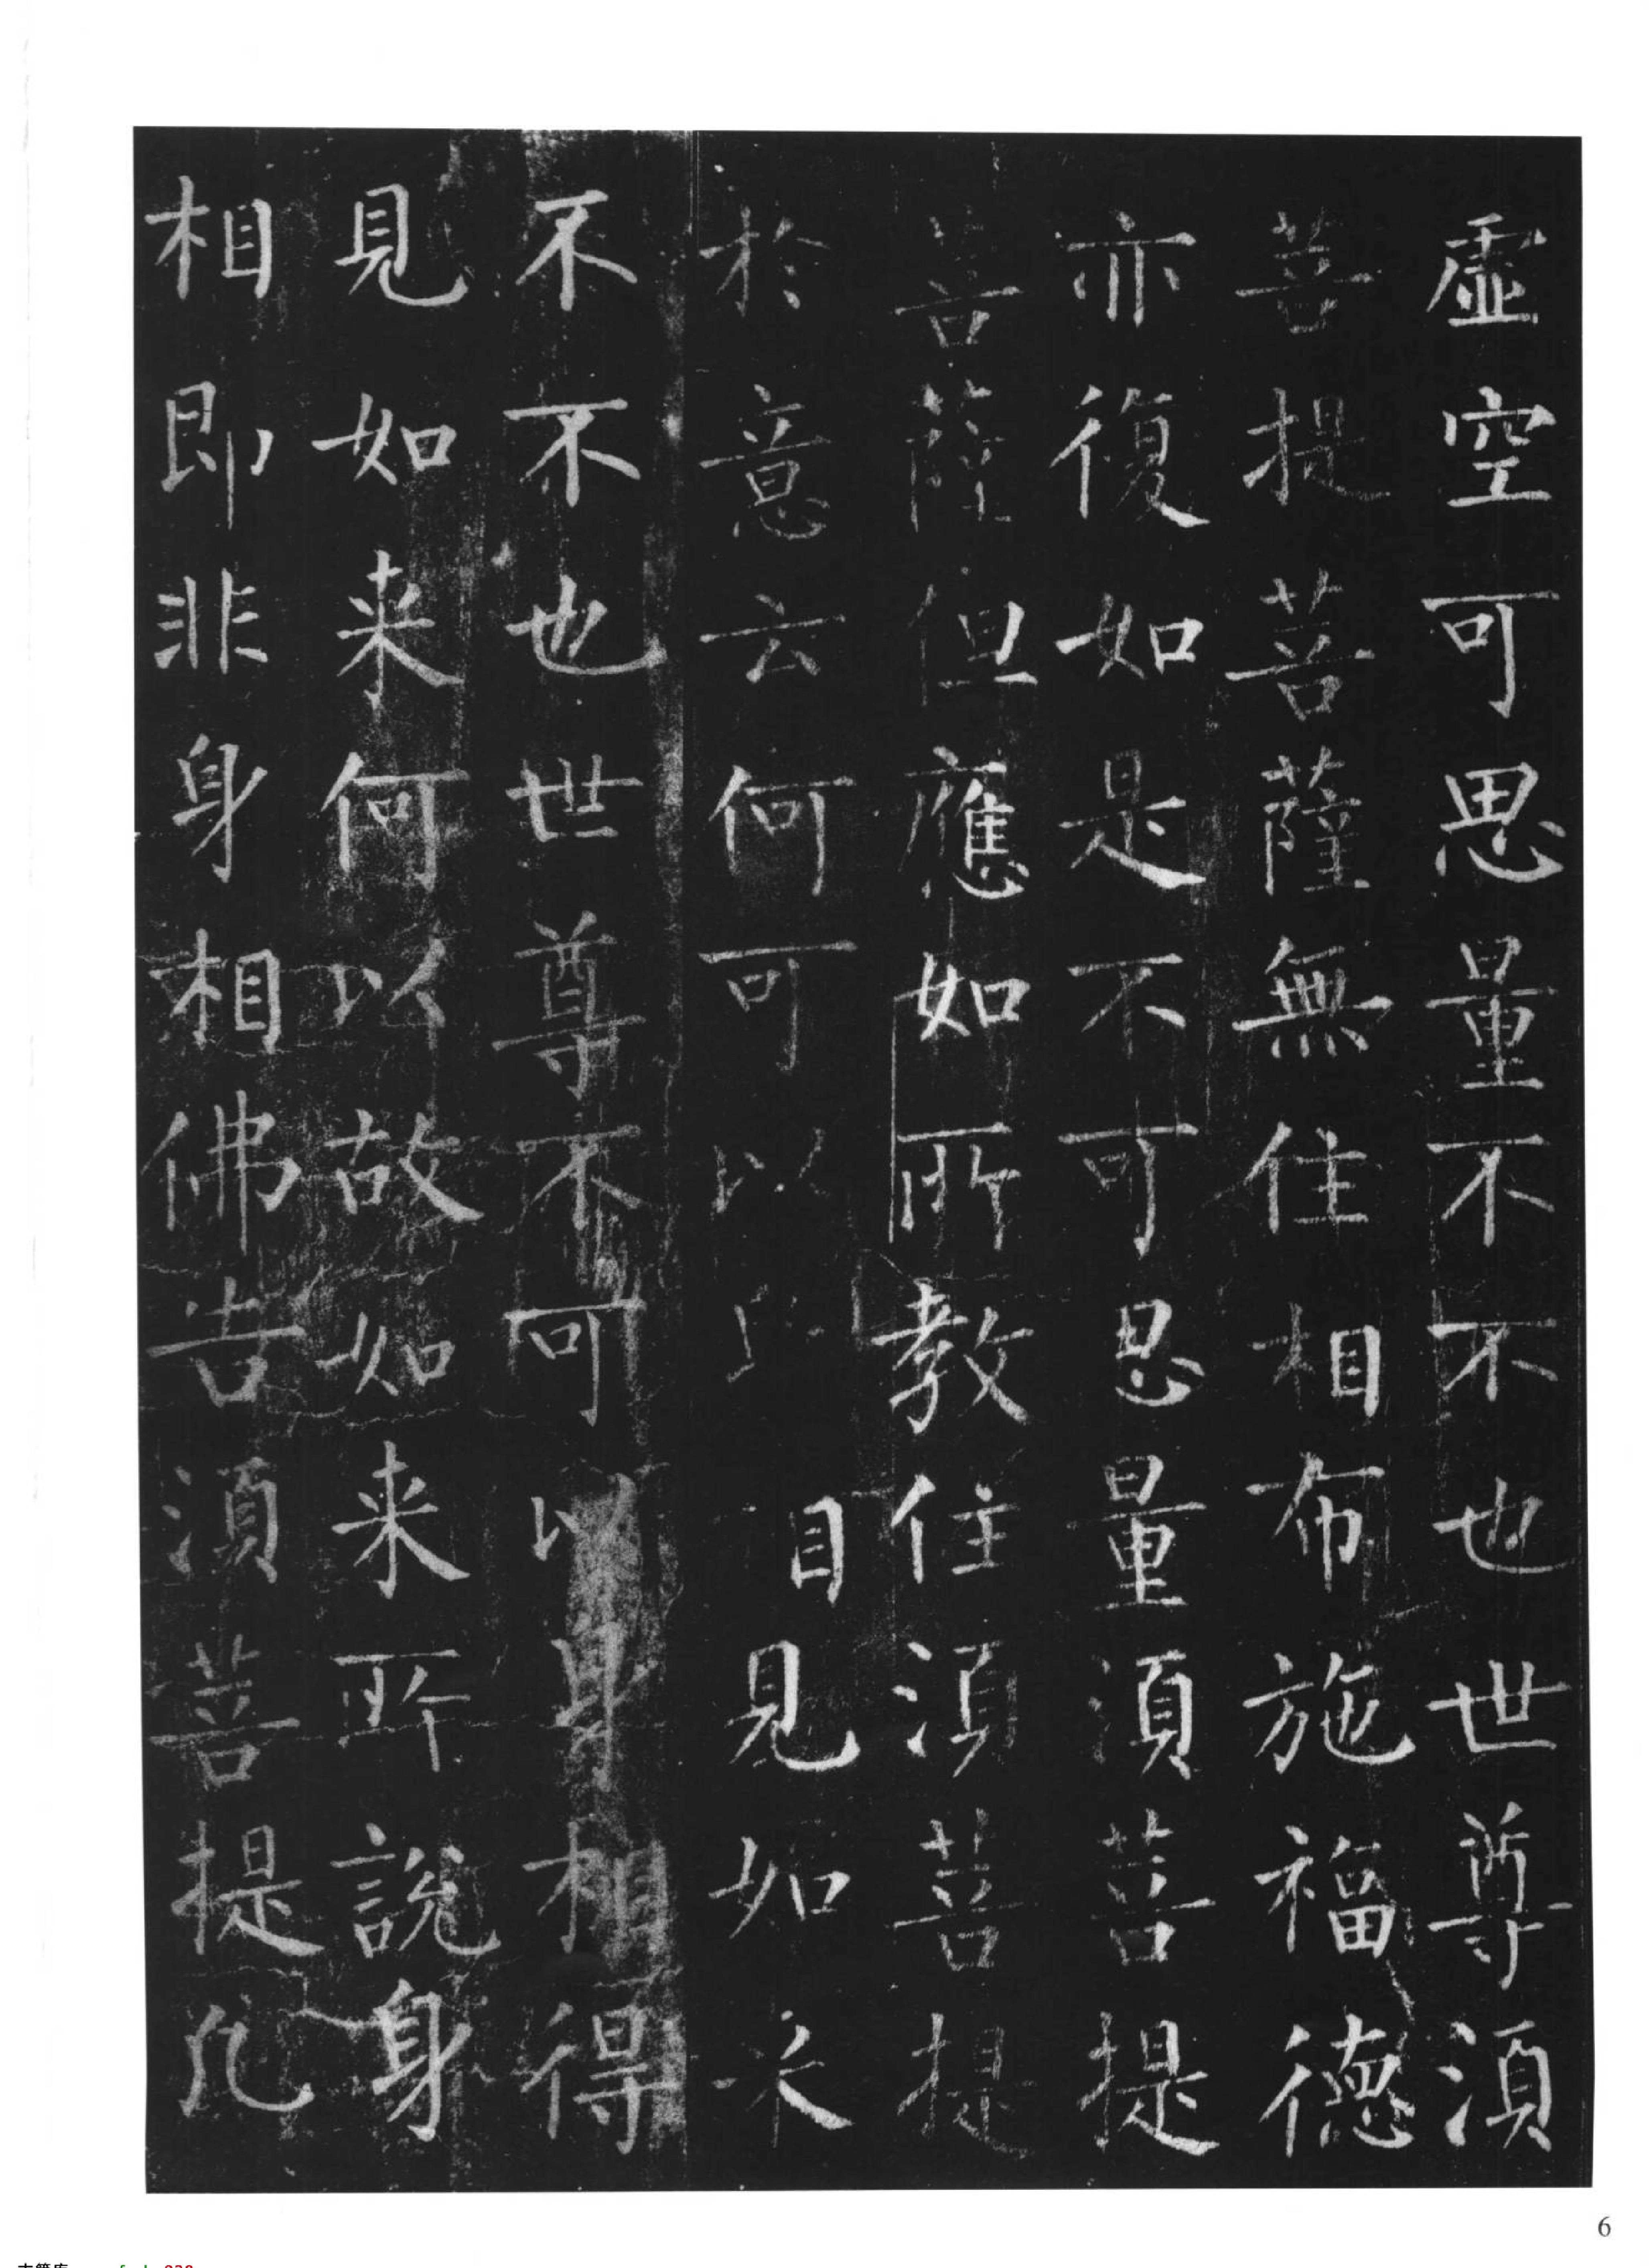 虛空可思量不不也世尊須
菩提菩薩無住相布施福德
亦復如是不可思量須菩提
菩薩但應如所教住須菩提
於意云何可以見如来
不不也世尊不可以身相得
見如来何以故如来所說身
相即非身相佛告須菩提凡
6